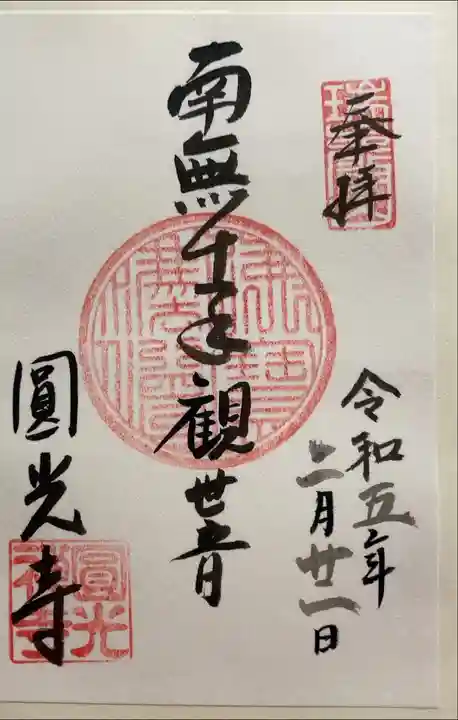 奉拝
令和五年
二月廿一日
南無千手觀世音
圓光寺
圓光
禅寺